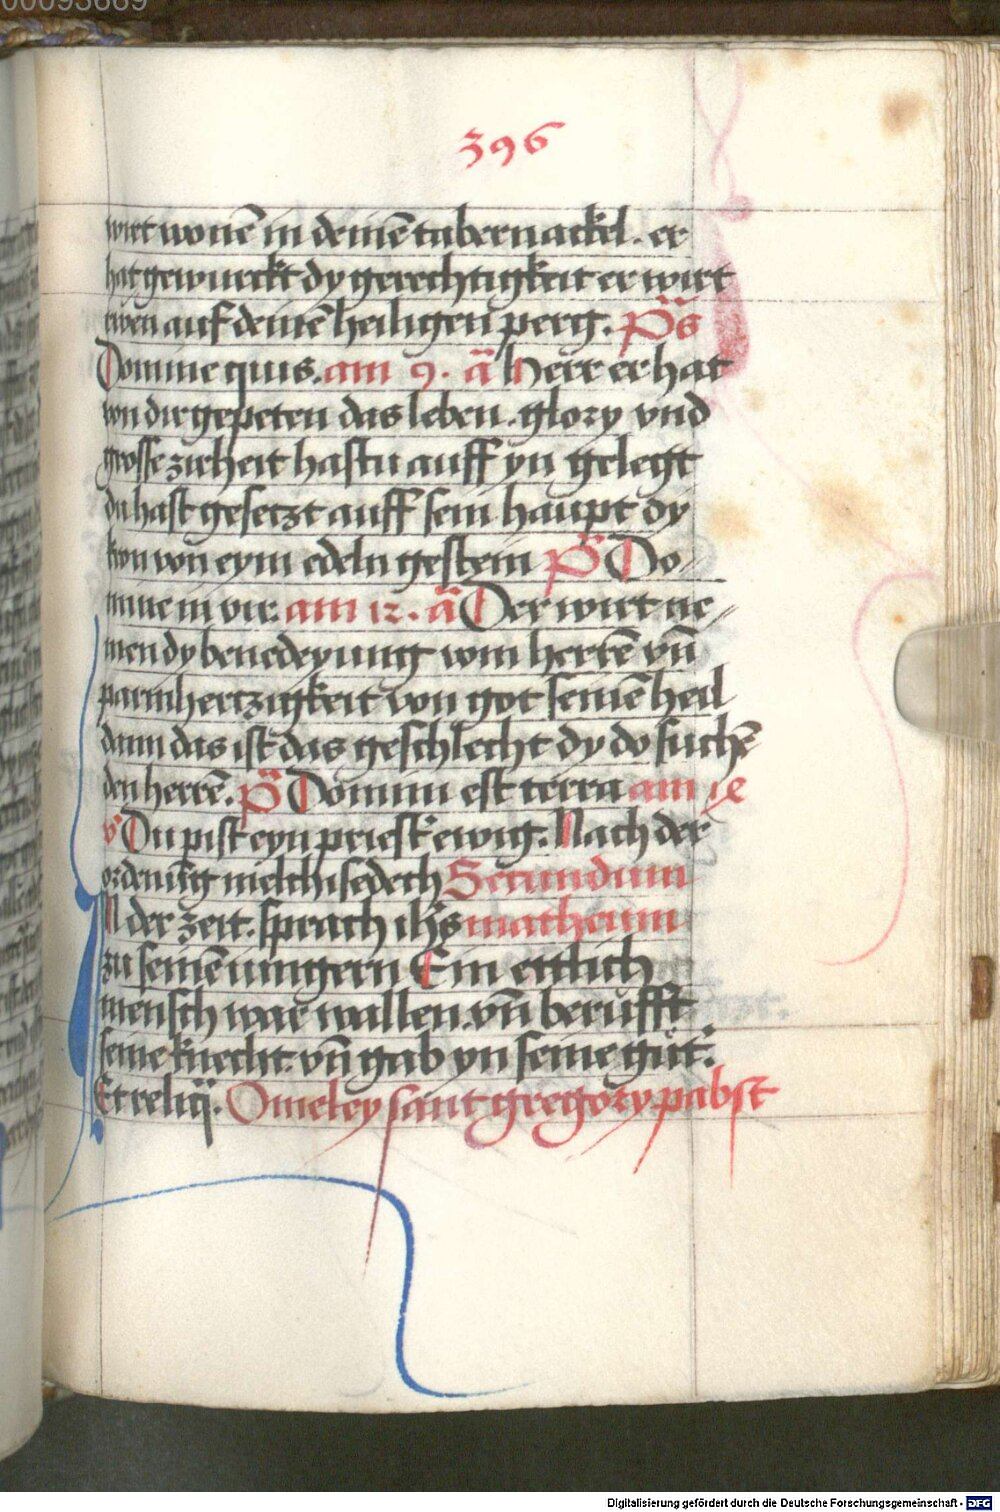 00093669
396
wirt wonē in deinē tabernackel. er
hat gewurckt dy gerechtigkeit er wirt
rwen auf deinē heiligen perg. Ps̄
Domine quis. am 9. ā Herr er hat
von dir gepeten das leben. glory vnd
grosse zirheit hastu auff yn gelegt
du hast gesetzt auff sein haupt dy
kron von eym edeln gestein Ps̄ Do-
mine in vir. am 12. ā Der wirt ne-
men dy benedeyung vom herrē vn̄
parmhertzigkeit von got seinē heil
dann das ist das geschlecht dy do suchē
den herrē. Ps̄ Domini est terra am
v̄ Du pist eyn priest' ewig. Nach der
ordenūg melchisedech Secundum
In der zeit. sprach ih̄s matheum
zu seinē iungern Ein ettlich
mensch was wallen. vn̄ berufft
seine knecht. vn̄ gab yn seine güt.
Et reliq̄. Omeley sant gregory pabst
Digitalisierung gefördert durch die Deutsche Forschungsgemeinschaft - DFG